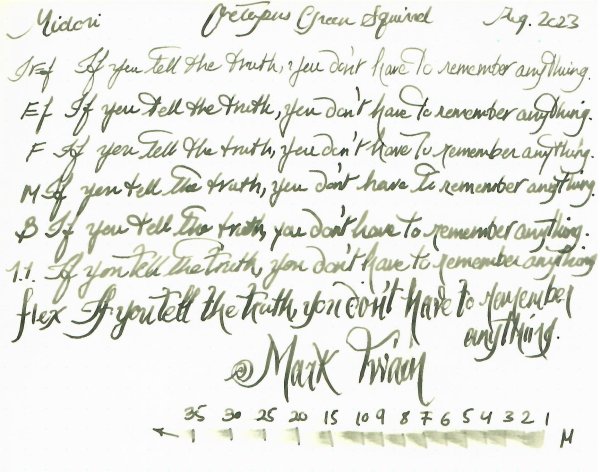 Midori Octopus Green Squirrel Aug. 2023
JEf If you tell the truth, you don't have to remember anything.
Ef If you tell the truth, you don't have to remember anything.
F If you tell the truth, you don't have to remember anything.
M If you tell the truth, you don't have to remember anything.
B If you tell the truth, you don't have to remember anything.
1.1. If you tell the truth, you don't have to remember anything
flex If you tell the truth, you don't have to remember
anything.
@ Mark Twain
35 30 25 20 15 10 9 8 7 6 5 4 3 2 1
M